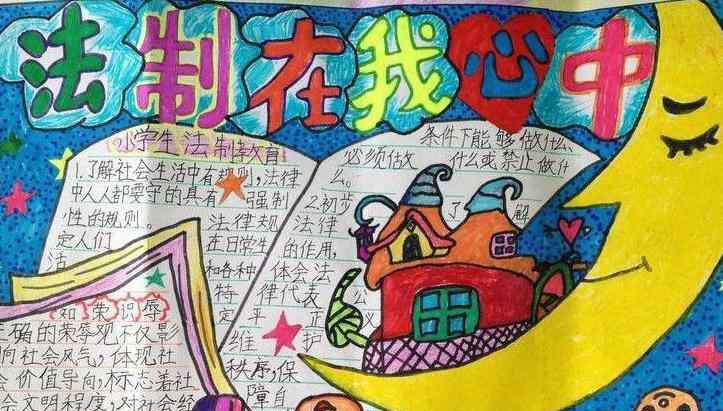 法制在我心中
小学生法制教育
1.了解社会生活中有规则,法律
中人人都要守的具有强制
性的规则。法律规
定人们在日常生
活和各种
特
定
条件下能够做什么、
必须做什么或禁止做什
么。
2.初步了解
法律
的作用,
体会法
律代表公
平正义
维护
秩序,保
障自
知荣识辱
正确的荣辱观不仅影
响社会风气,体现社
会价值导向,标志着社
会文明程度,对社会经